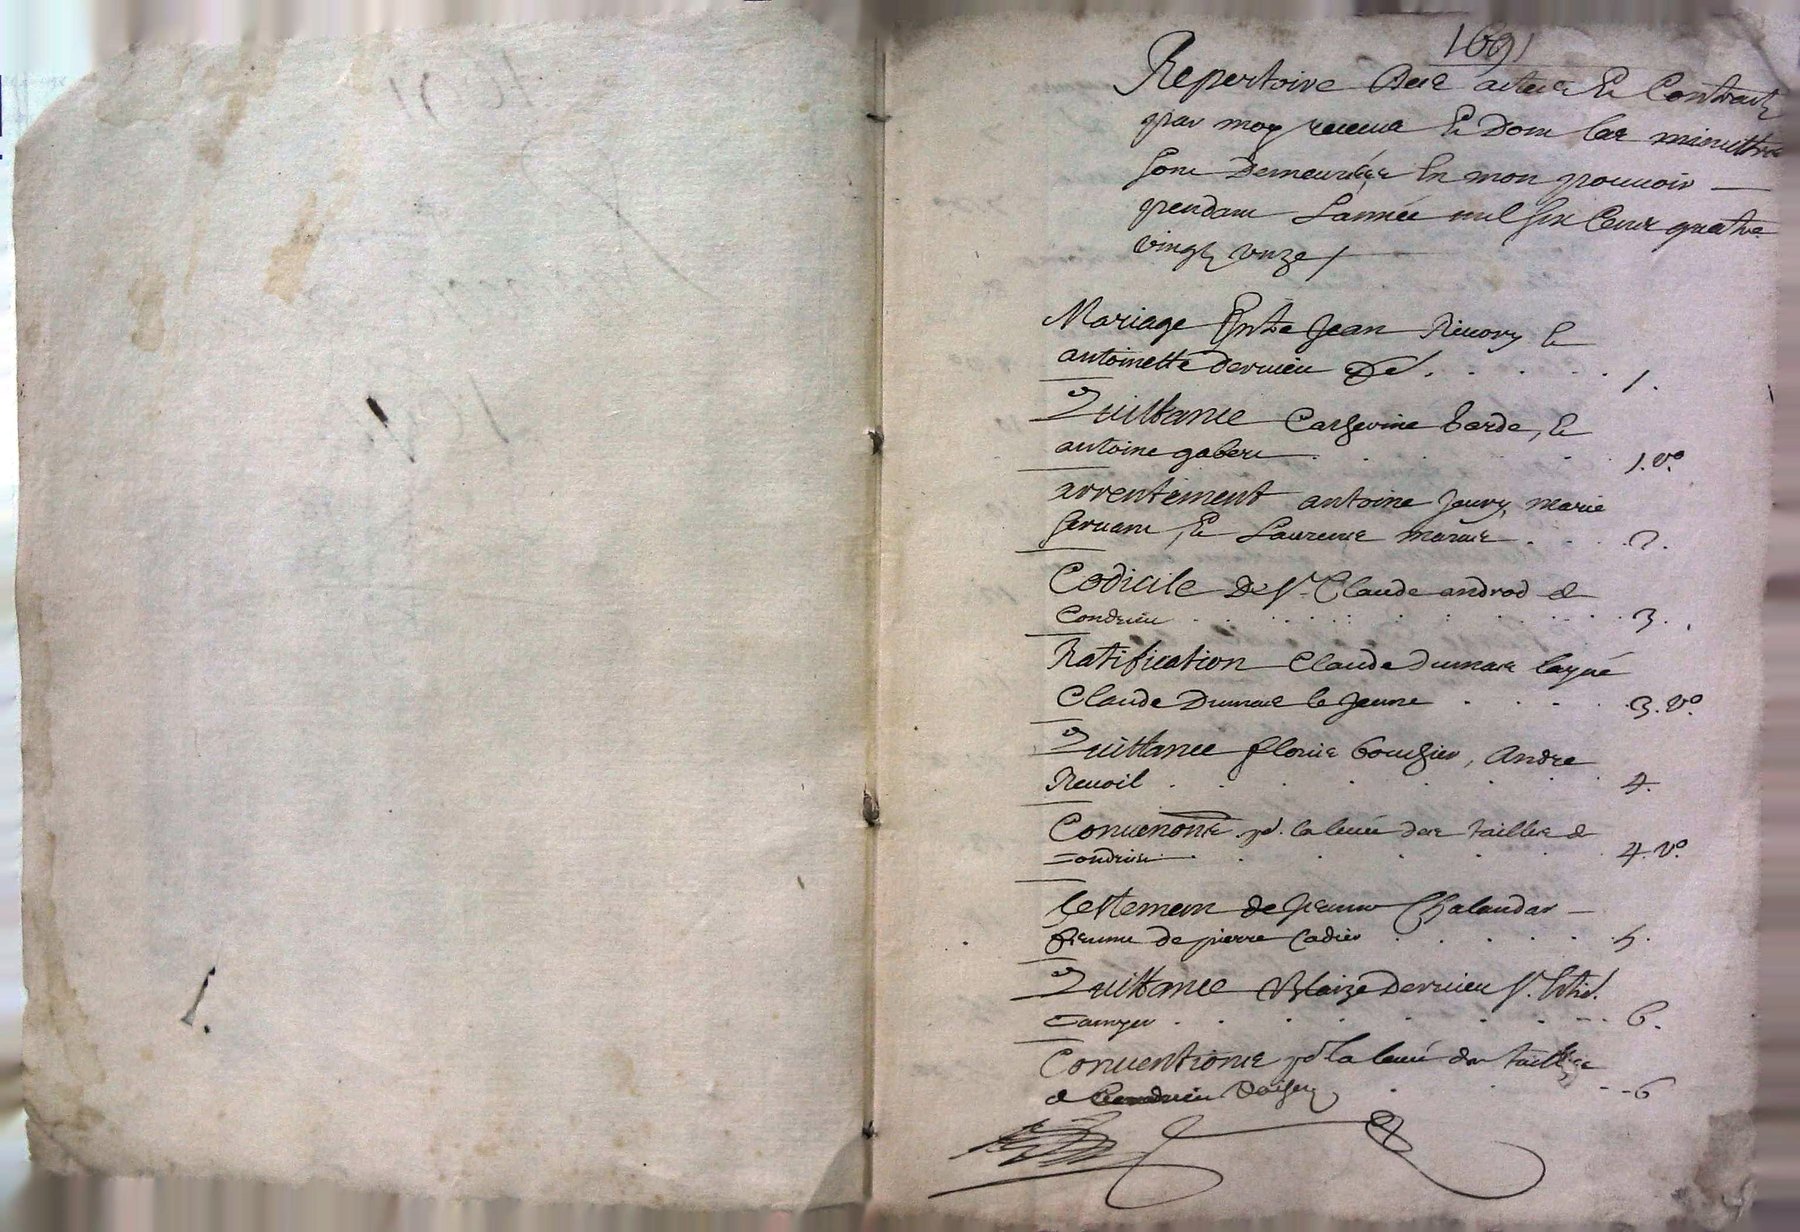 1691
Repertoire des actes et Contracts
par moy receus et dont les minuttes
sont demeurées en mon pouvoir
pendant L'année mil six Cent quatre
vingt unze /
Mariage Entre Jean Rivory et
antoinette dervieu . . . . . 1.
Quittance Catherine barde, et
antoine gabert . . . 1. v°
arrentement antoine Jaury, marie
servant, et Laurence . . . 2.
Codicile de Sr Claude androd de
Condrieu . . . 3.
Ratification Claude dumas layné
Claude Dumas le Jeune . . . 3. v°
Quittance florie bouchier, Andre
Revoil . . . 4.
Convenons pr. la levée des tailles de
Condrieu . . . 4. v°
testement de Jeanne Chalandar
femme de pierre Cadier . . . 5.
Quittance Blaize Dervieu Sr.
. . . 6.
Conventions pr la levée des tailles
de Condrieu . . . 6
1.